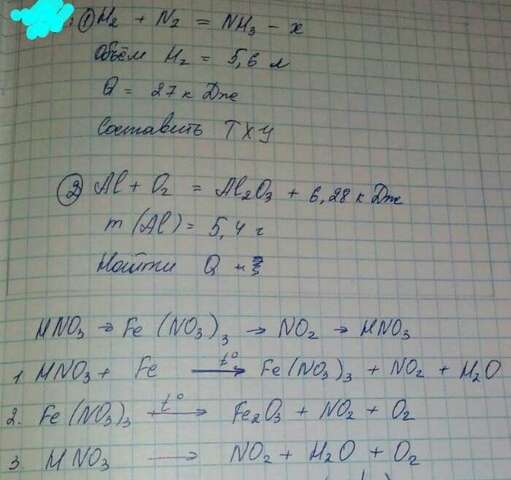 ① H₂ + N₂ = NH₃ - x
Объём H₂ = 5,6 л
Q = 27 кДж
Составить ТХУ
② Al + O₂ = Al₂O₃ + 6,28 кДж
m (Al) = 5,4 г
Найти Q
HNO₃ → Fe (NO₃)₃ → NO₂ → HNO₃
1. HNO₃ + Fe t° → Fe(NO₃)₃ + NO₂ + H₂O
2. Fe(NO₃)₃ t° → Fe₂O₃ + NO₂ + O₂
3. HNO₃ → NO₂ + H₂O + O₂